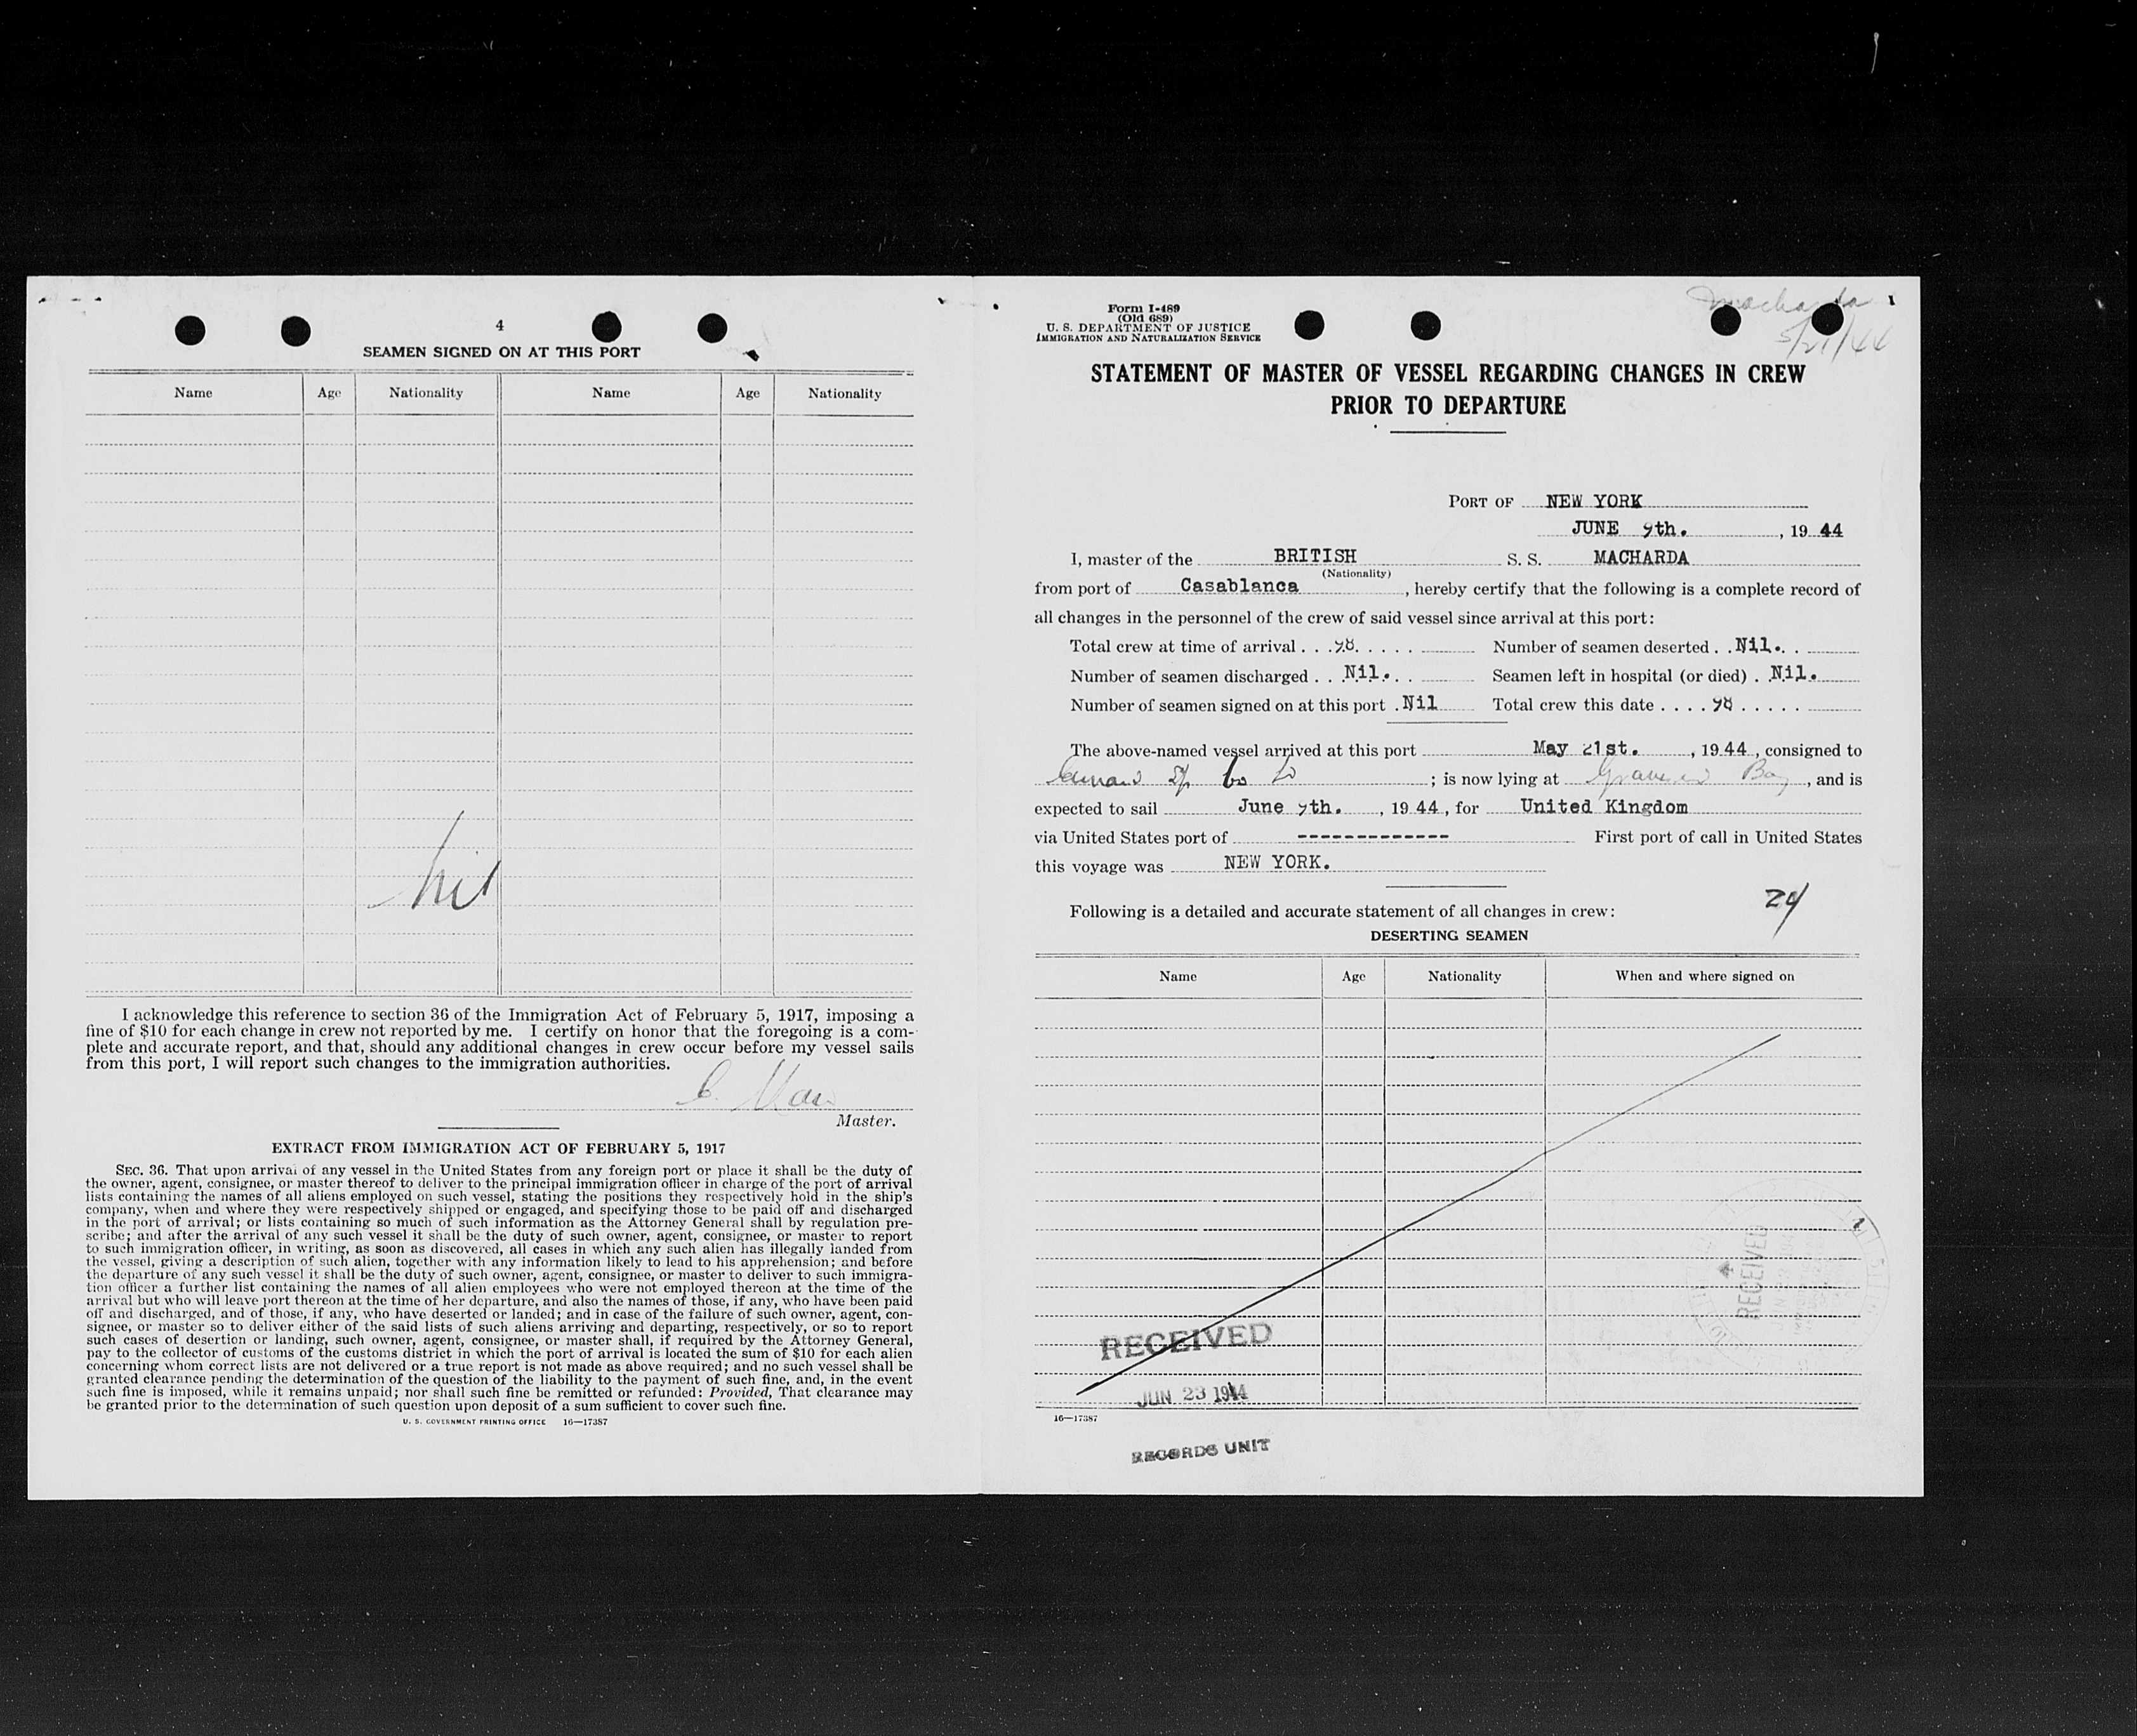 4
SEAMEN SIGNED ON AT THIS PORT
Name Age Nationality Name Age Nationality
Nil
I acknowledge this reference to section 36 of the Immigration Act of February 5, 1917, imposing a
fine of $10 for each change in crew not reported by me. I certify on honor that the foregoing is a com-
plete and accurate report, and that, should any additional changes in crew occur before my vessel sails
from this port, I will report such changes to the immigration authorities.
Master.
EXTRACT FROM IMMIGRATION ACT OF FEBRUARY 5, 1917
SEC. 36. That upon arrival of any vessel in the United States from any foreign port or place it shall be the duty of
the owner, agent, consignee, or master thereof to deliver to the principal immigration officer in charge of the port of arrival
lists containing the names of all aliens employed on such vessel, stating the positions they respectively hold in the ship's
company, when and where they were respectively shipped or engaged, and specifying those to be paid off and discharged
in the port of arrival; or lists containing so much of such information as the Attorney General shall by regulation pre-
scribe; and after the arrival of any such vessel it shall be the duty of such owner, agent, consignee, or master to report
to such immigration officer, in writing, as soon as discovered, all cases in which any such alien has illegally landed from
the vessel, giving a description of such alien, together with any information likely to lead to his apprehension; and before
the departure of any such vessel it shall be the duty of such owner, agent, consignee, or master to deliver to such immigra-
tion officer a further list containing the names of all alien employees who were not employed thereon at the time of the
arrival but who will leave port thereon at the time of her departure, and also the names of those, if any, who have been paid
off and discharged, and of those, if any, who have deserted or landed; and in case of the failure of such owner, agent, con-
signee, or master so to deliver either of the said lists of such aliens arriving and departing, respectively, or so to report
such cases of desertion or landing, such owner, agent, consignee, or master shall, if required by the Attorney General,
pay to the collector of customs of the customs district in which the port of arrival is located the sum of $10 for each alien
concerning whom correct lists are not delivered or a true report is not made as above required; and no such vessel shall be
granted clearance pending the determination of the question of the liability to the payment of such fine, and, in the event
such fine is imposed, while it remains unpaid; nor shall such fine be remitted or refunded: Provided, That clearance may
be granted prior to the determination of such question upon deposit of a sum sufficient to cover such fine.
U. S. GOVERNMENT PRINTING OFFICE 16—17387
Form I-489
(Old 689)
U. S. DEPARTMENT OF JUSTICE
IMMIGRATION AND NATURALIZATION SERVICE
Macharda
5/21/44
STATEMENT OF MASTER OF VESSEL REGARDING CHANGES IN CREW
PRIOR TO DEPARTURE
PORT OF NEW YORK
JUNE 9th. , 19 44
I, master of the BRITISH S. S. MACHARDA
(Nationality)
from port of Casablanca , hereby certify that the following is a complete record of
all changes in the personnel of the crew of said vessel since arrival at this port:
Total crew at time of arrival . . . 98. . . . . Number of seamen deserted . . Nil. . .
Number of seamen discharged . . . Nil. . . Seamen left in hospital (or died) . Nil.
Number of seamen signed on at this port . Nil Total crew this date . . . . 98 . . . . .
The above-named vessel arrived at this port May 21st. , 19 44 , consigned to
Cunard Co Ld ; is now lying at Gravesend Bay , and is
expected to sail June 9th. , 19 44 , for United Kingdom
via United States port of ------------- First port of call in United States
this voyage was NEW YORK.
24
Following is a detailed and accurate statement of all changes in crew:
DESERTING SEAMEN
Name Age Nationality When and where signed on
RECEIVED
RECEIVED
JUN 23 1944
16—17387
RECORDS UNIT